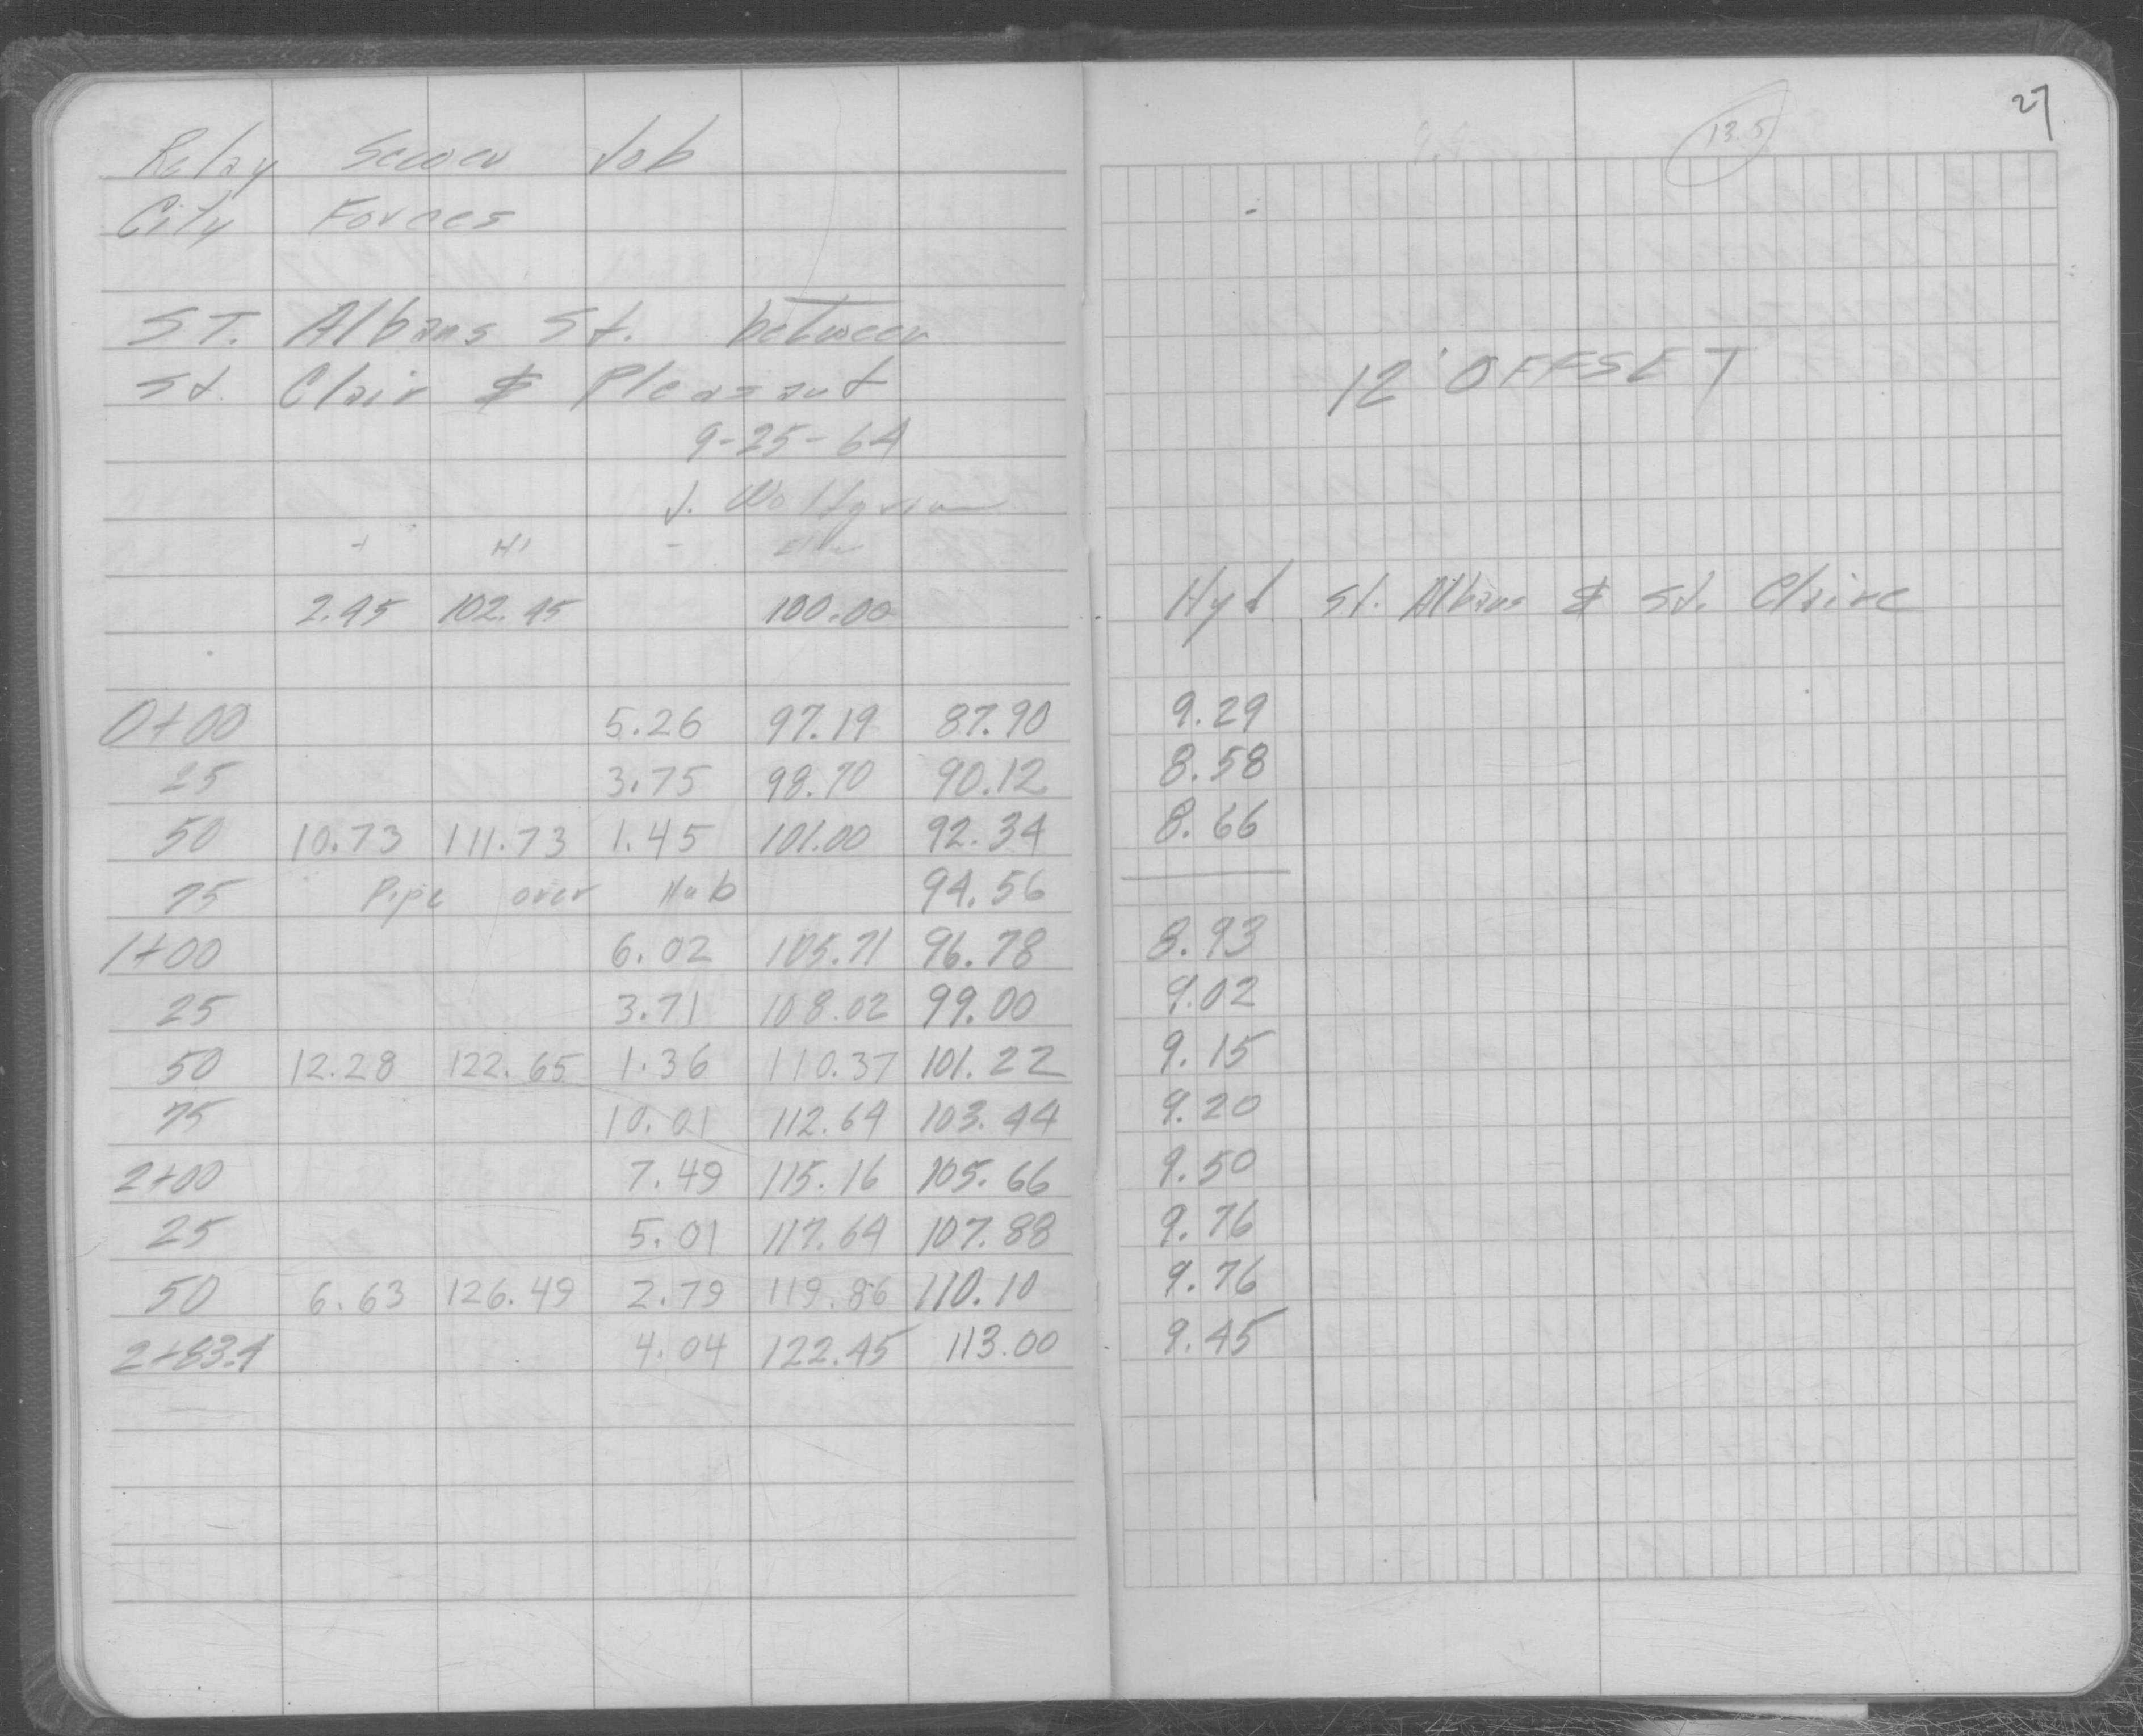 Relay Sewer Job
City Forces
ST. Albans St. between
St. Clair & Pleasant
9-25-64
+ HI - Elev
2.45 102.45 100.00
0+00 5.26 97.19 87.90
25 3.75 98.70 90.12
50 10.73 111.73 1.45 101.00 92.34
75 Pipe over Hub 94.56
1+00 6.02 105.71 96.78
25 3.71 108.02 99.00
50 12.28 122.65 1.36 110.37 101.22
75 10.01 112.64 103.44
2+00 7.49 115.16 105.66
25 5.01 117.64 107.88
50 6.63 126.49 2.79 119.86 110.10
2+83.4 4.04 122.45 113.00
27
13.5
12' OFFSET
Hyd St. Albans & St. Claire
9.29
8.58
8.66
8.93
9.02
9.15
9.20
9.50
9.76
9.76
9.45